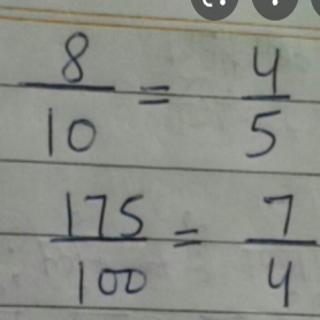 8/10 = 4/5
175/100 = 7/4